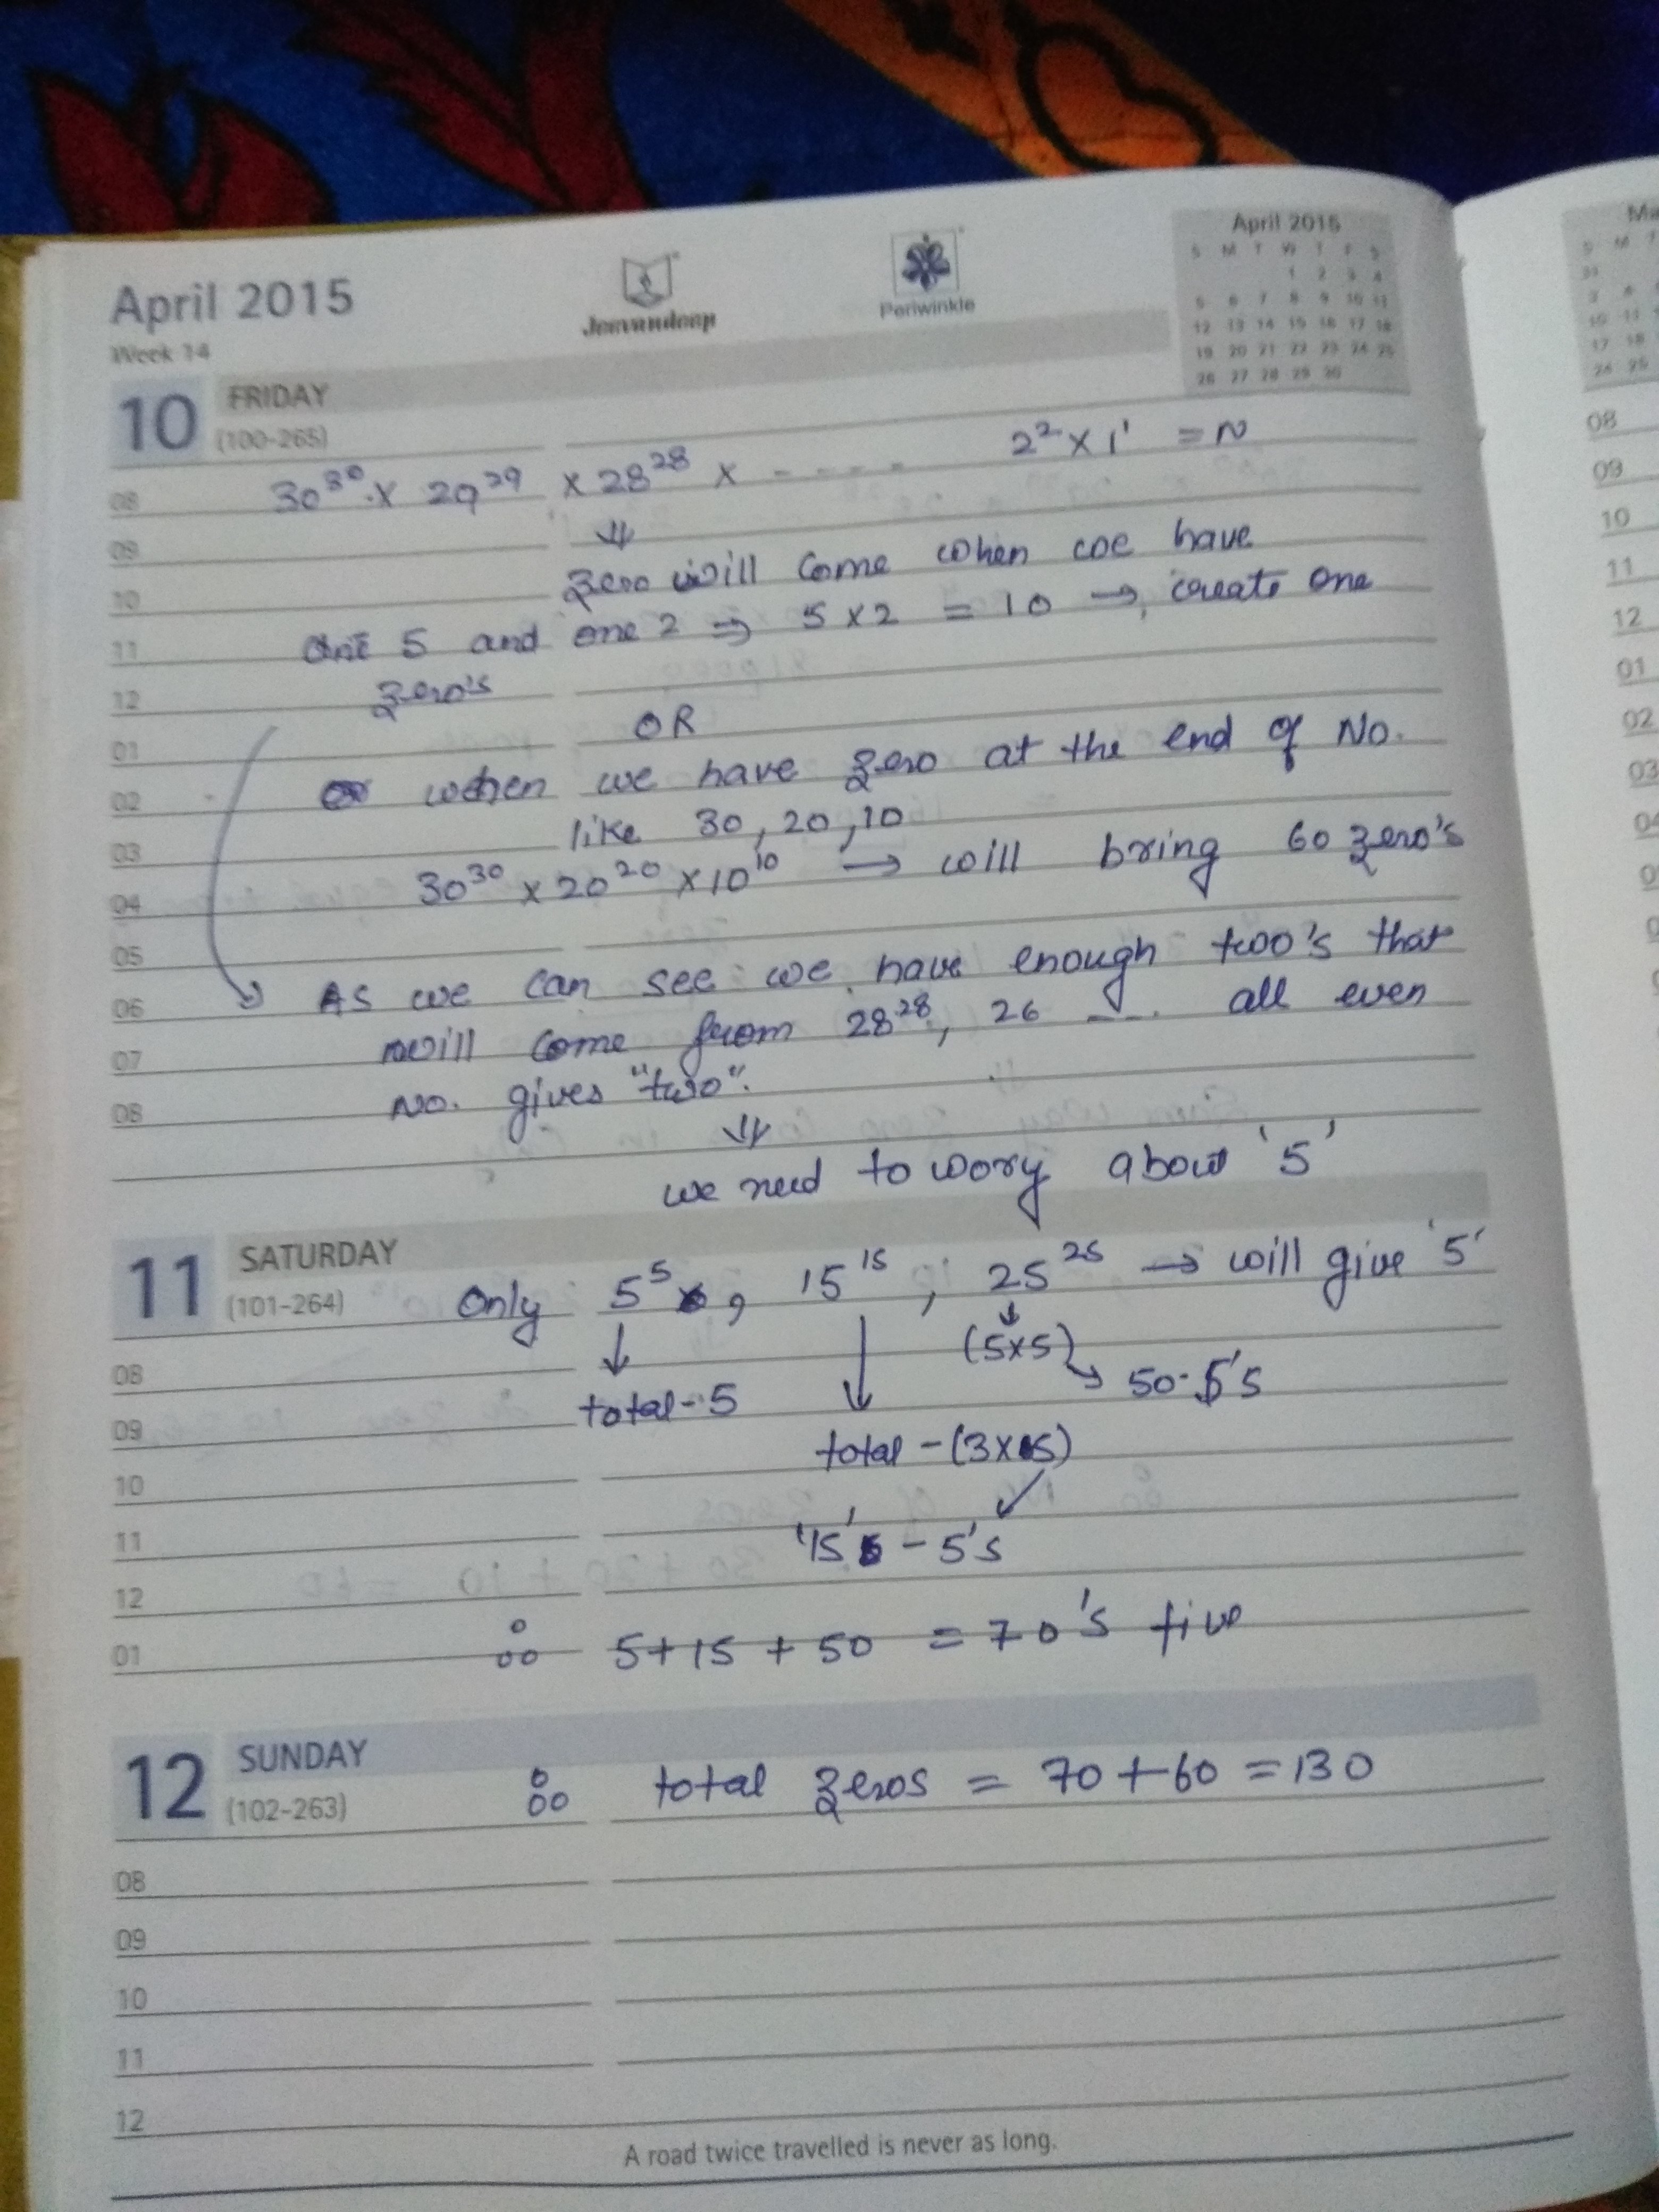 April 2015
Week 14
Jeevandeep
Periwinkle
April 2015
S M T W T F S
1 2 3 4
5 6 7 8 9 10 11
12 13 14 15 16 17 18
19 20 21 22 23 24 25
26 27 28 29 30
10 FRIDAY
(100-265)
30³⁰ x 29²⁹ x 28²⁸ x - - - - 2² x 1¹ = N
08
⇓
09
zero will come when we have
10
one 5 and one 2 ⇒ 5 x 2 = 10 → create one
11
zero's
12
OR
01
or when we have zero at the end of No.
02
like 30, 20, 10
03
30³⁰ x 20²⁰ x 10¹⁰ → will bring 60 zero's
04
05
As we can see we have enough two's that
06
will come from 28²⁸, 26 ---. all even
07
No. gives "two".
08
⇓
we need to wory about '5'
11 SATURDAY
(101-264)
Only 5⁵, 15¹⁵, 25²⁵ → will give '5'
(5x5) → 50-5's
08
total-5
09
total - (3x5)
10
11
'15' - 5's
12
01
∴ 5+15+50 = 70's five
12 SUNDAY
(102-263)
∴ total zeros = 70+60 = 130
08
09
10
11
12
A road twice travelled is never as long.
Ma
08
09
10
11
12
01
02
03
04